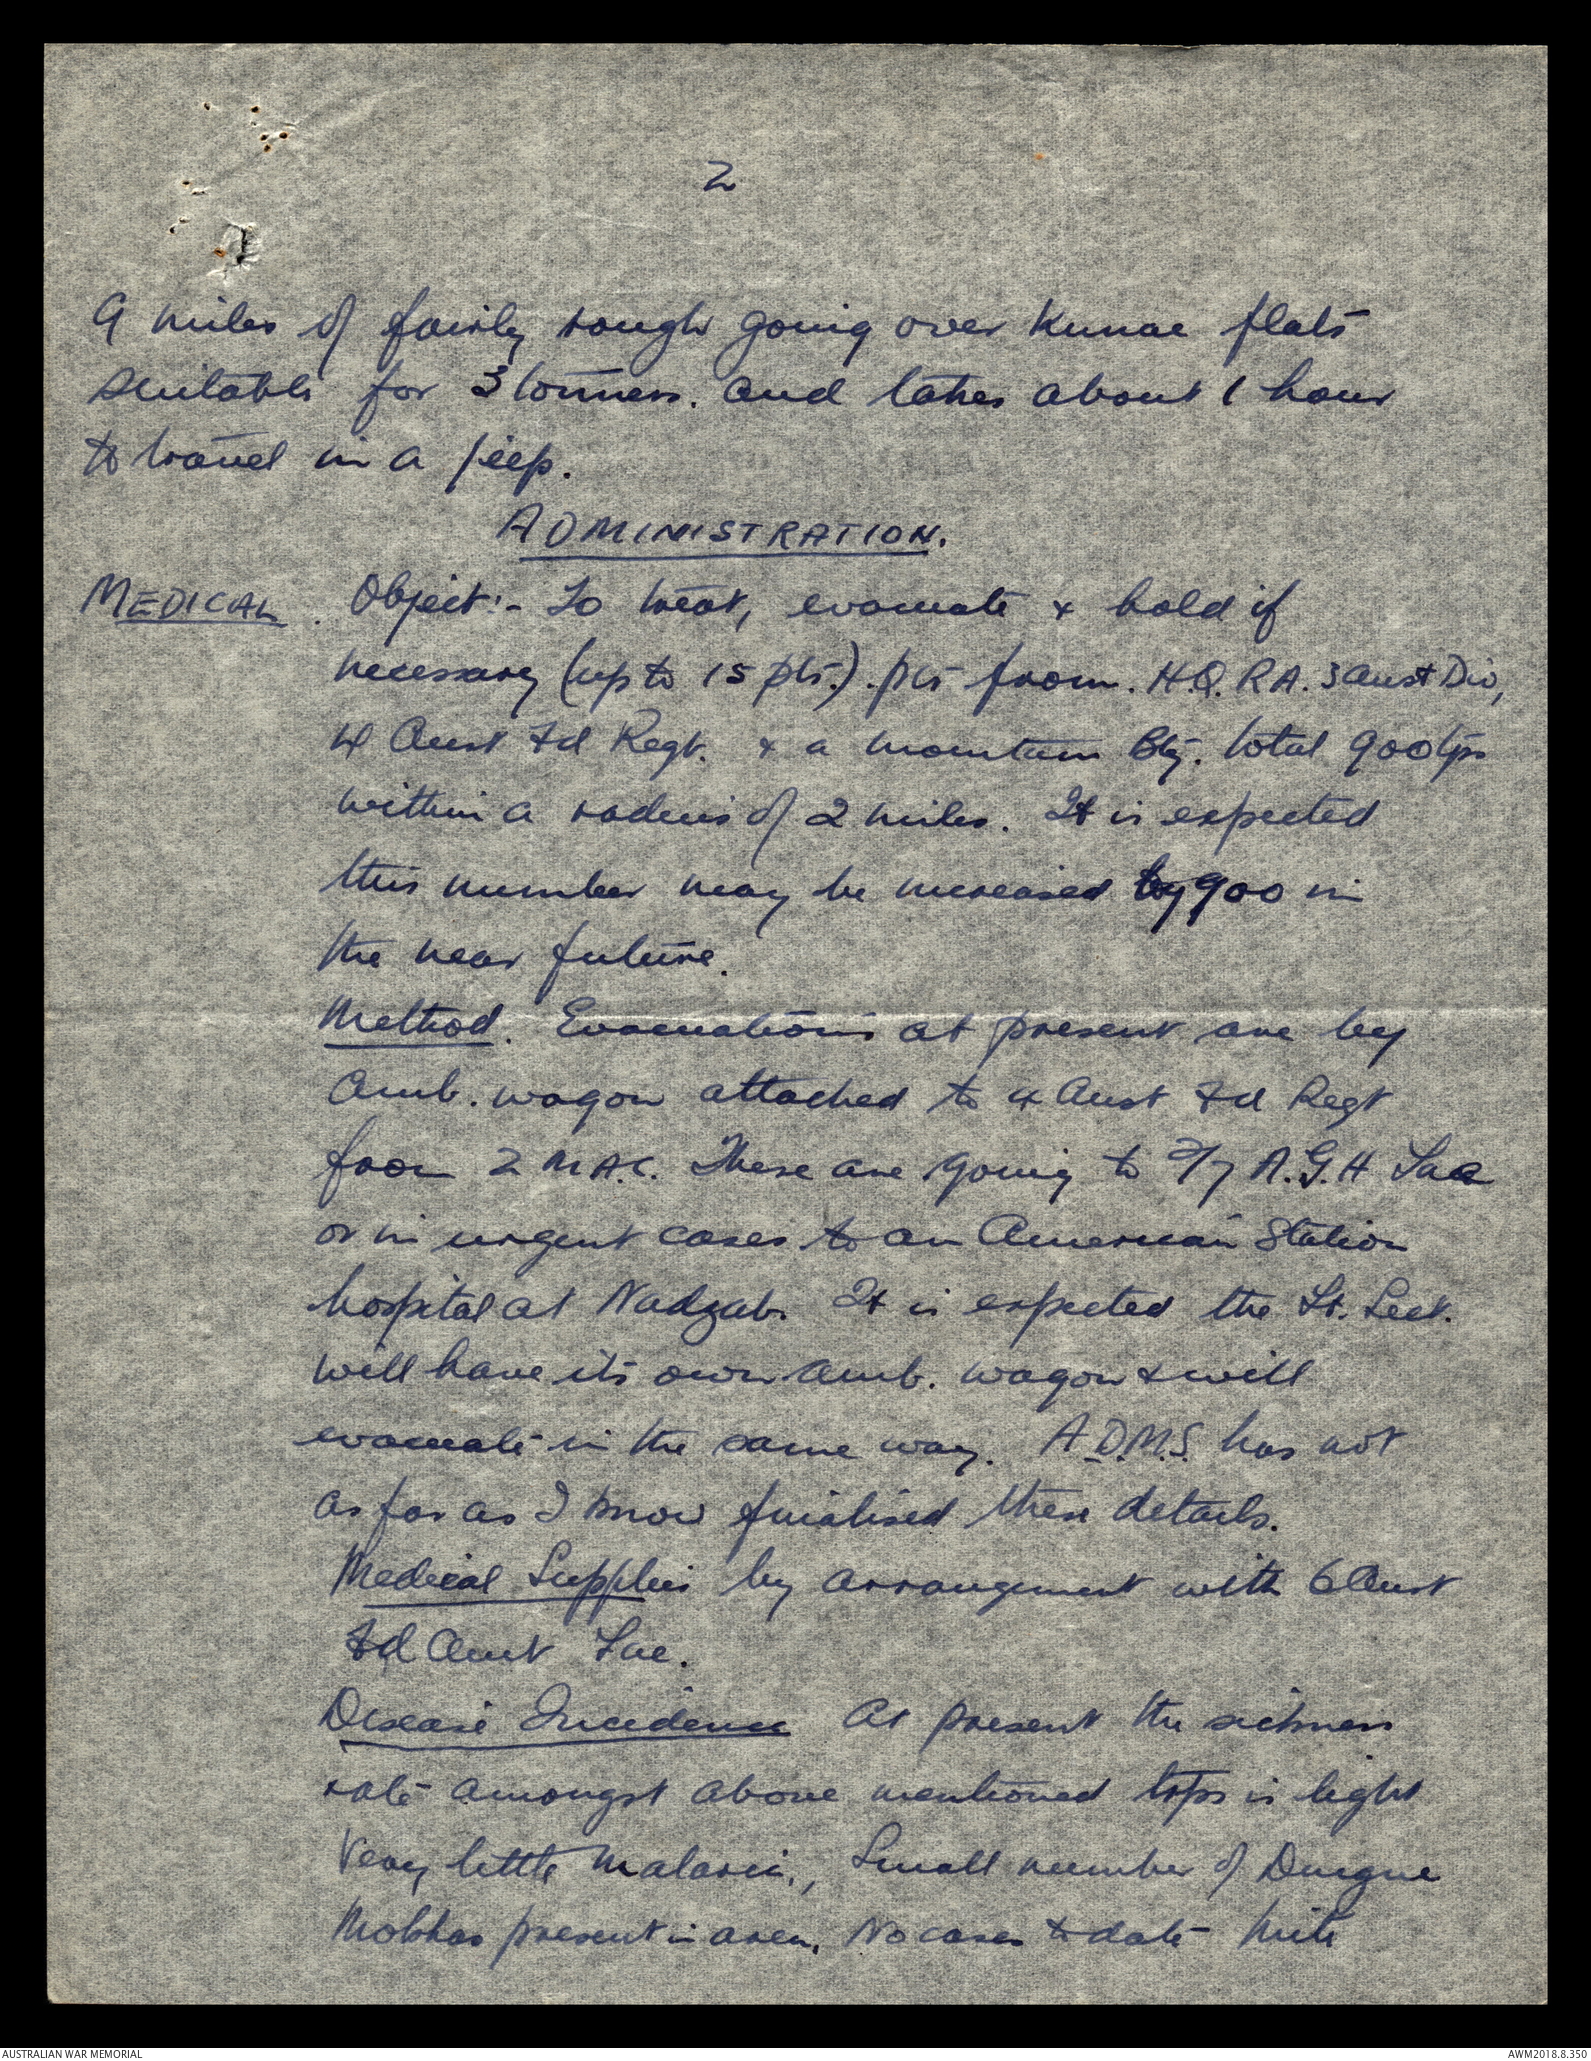 2
9 miles of fairly rough going over Kunae flats
suitable for 3 tonners. and takes about 1 hour
to travel in a jeep.
ADMINISTRATION.
MEDICAL. Object:- To treat, evacuate & hold if
necessary (up to 15 pts.). pts from. H.Q. R.A. 3 Aust Div,
4 Aust Fd Regt. & a mountain Bty. total 900 tps
within a radius of 2 miles. It is expected
this number may be increased by 900 in
the near future.
Method. Evacuations at present are by
Amb. wagon attached to 4 Aust Fd Regt
from 2 M.A.C. These are going to 2/7 A.G.H Lae
or in urgent cases to an American Station
hospital at Nadzab. It is expected the Lt. Sect.
will have its own amb. wagon & will
evacuate in the same way. A.D.M.S. has not
as far as I know finalised these details.
Medical Supplies by arrangement with 6 Aust
Fd Amb Lae.
Disease Incidence At present the sickness
rate amongst above mentioned tps is light
Very little Malaria., Small number of Dengue
Mokkas present in area, No cases to date Mite
AUSTRALIAN WAR MEMORIAL
AWM2018.8.350